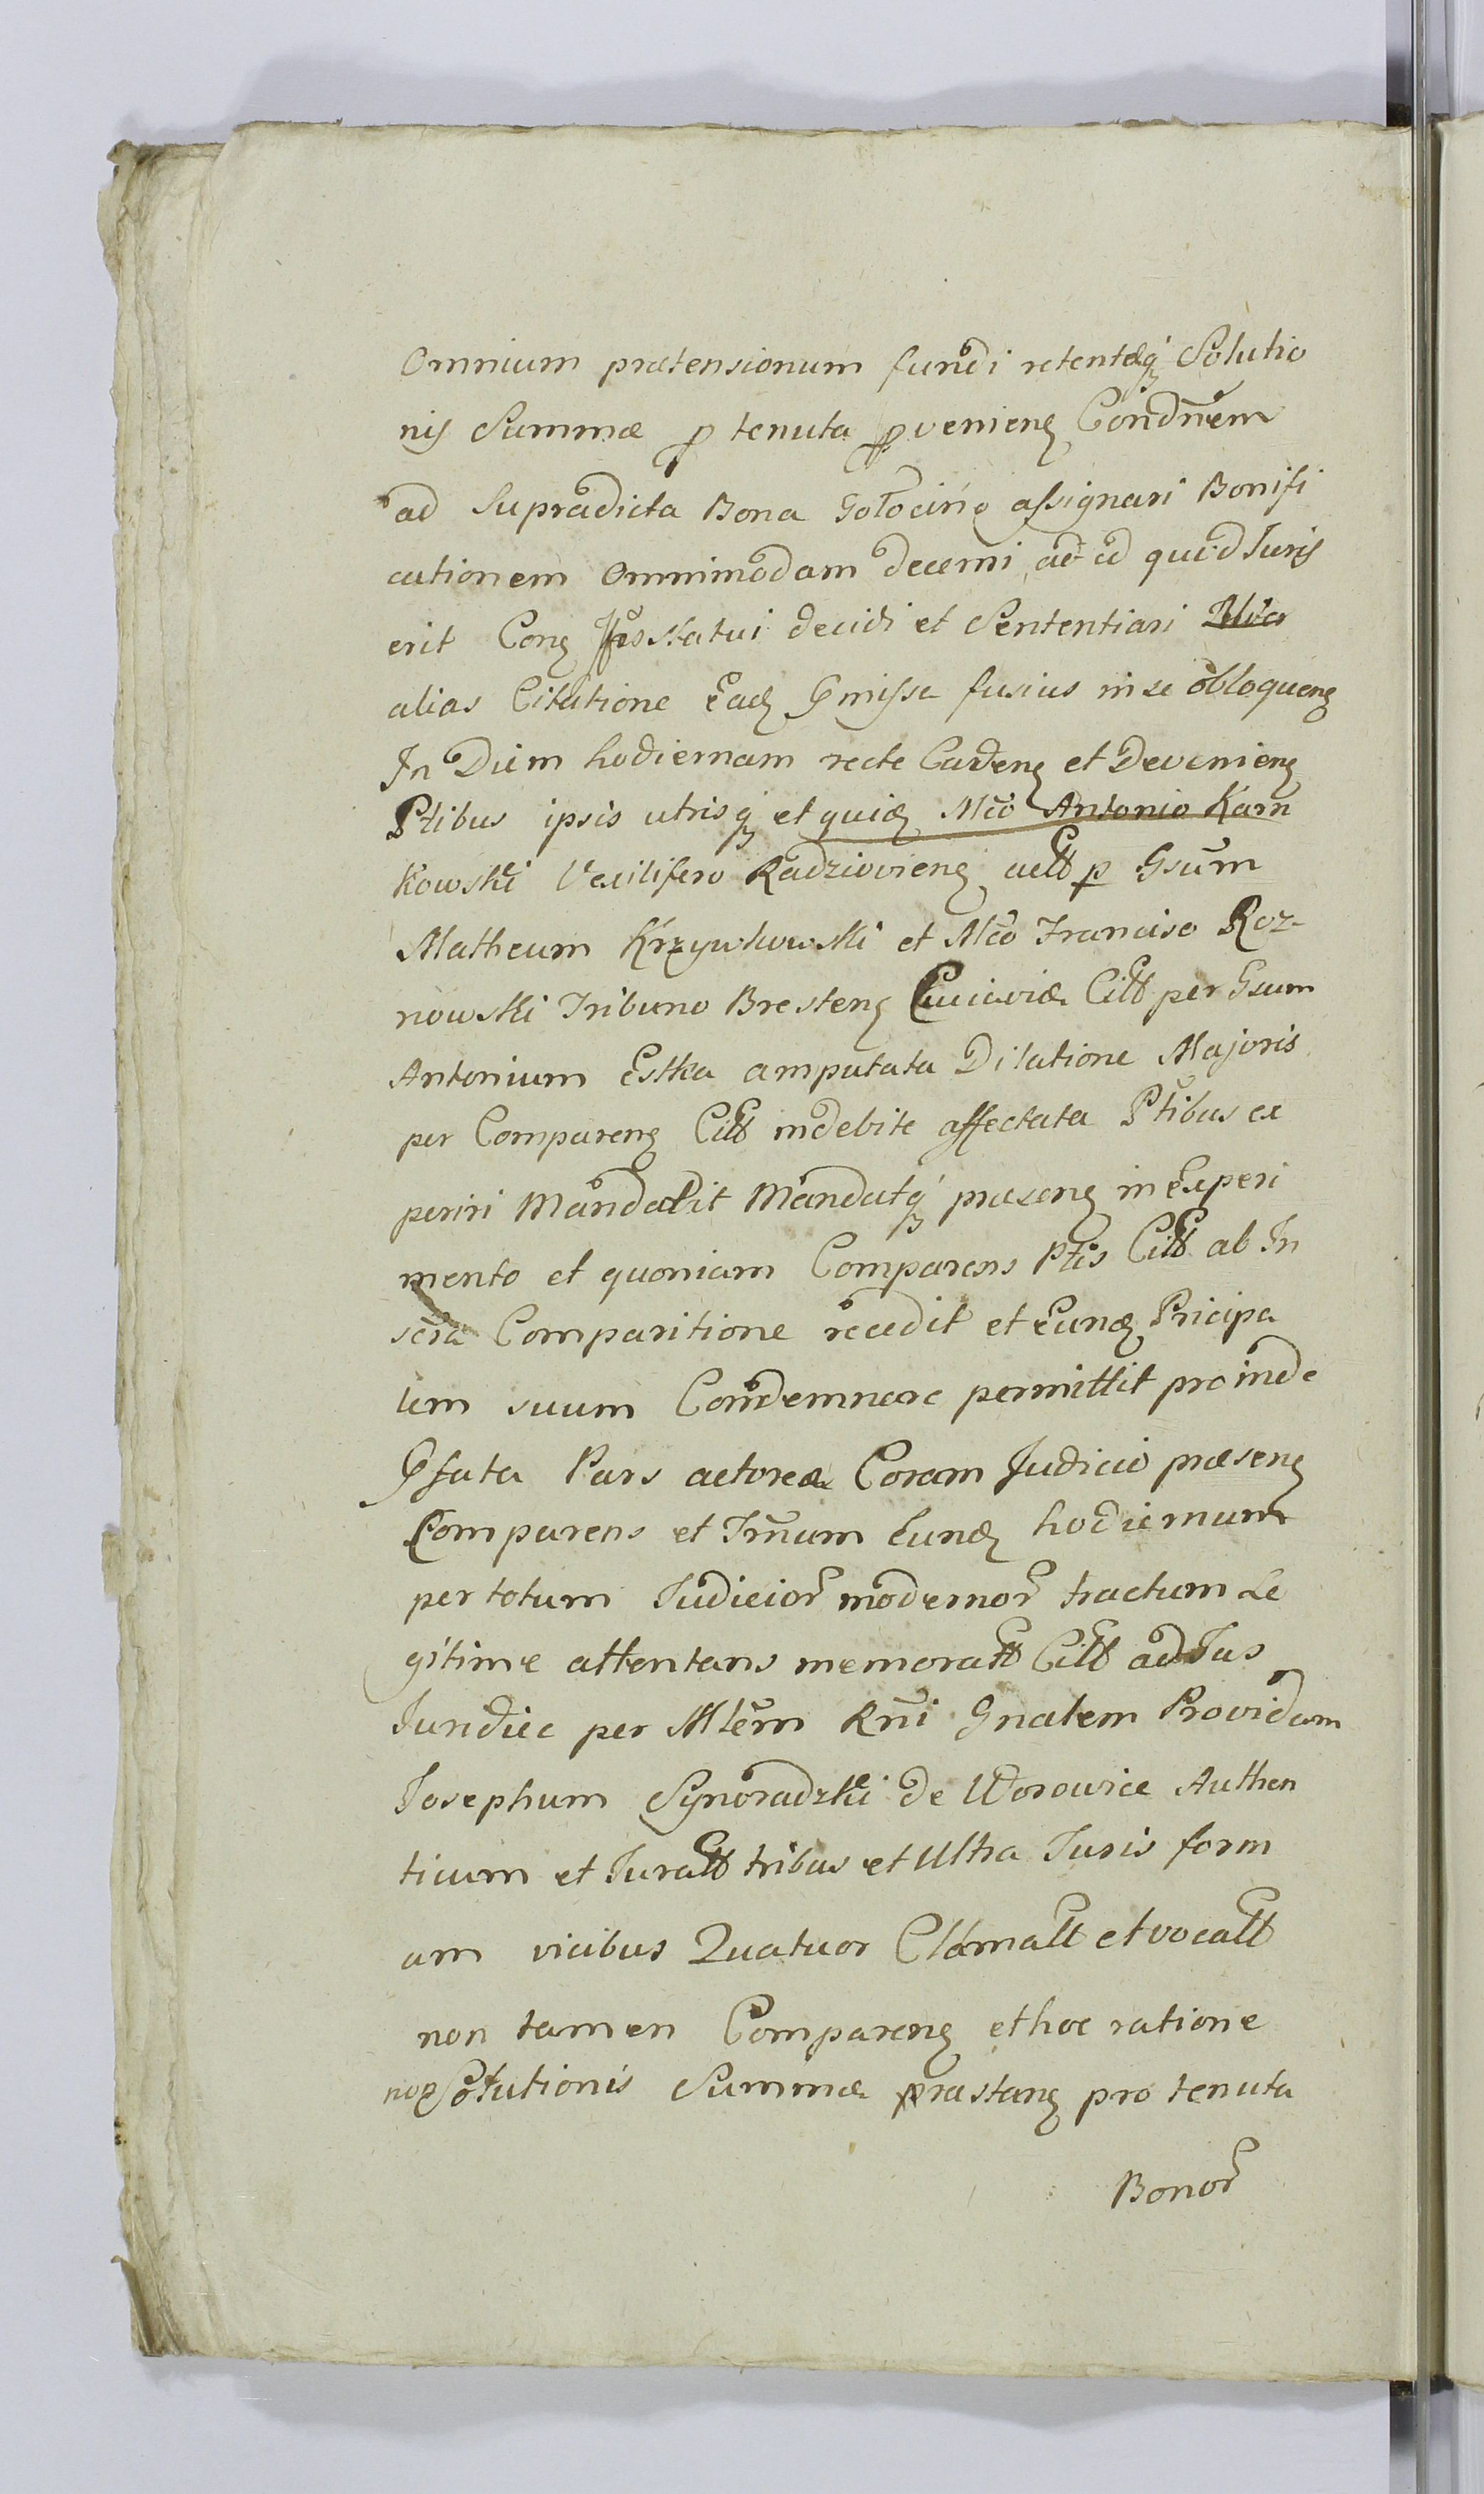 Omnium prætensionum fundi retentæq3 Solutio
nis Summæ p tenuta pvenieng Condnem
ad Supradicta Bona Gołocino assignari Bonifi
cationem Omnimodam decerni ad id quid Juris
erit Cong statui decidi et Sententiari
alias Citatione Eadz pmissa fusius in se obloqueng
In Diem hodiernam recte Cadeng et Devenieng
Ptibus ipsis utrisq3 et quidz Mco Antonio Karn
kowski Vexilifero Radziovieng actt p Gsum
Matheum Krzywkowski et Mco Franciso Roz-
nowski Tribuno Bresteng Cuiaviæ Citt per Gsum
Antonium Estka amputata Dilatione Majoris
per Compareng Citt indebite affectata Ptibus ex
periri Mandavit Mandatq3 præseng in Experi
mento et quoniam Comparens Ptis Citt ab In
scta Comparitione recedit et Eundz Pricipa
lem suum Condemnare permittit proinde
Pfata Pars actorea Coram Judicio præseng
Comparens et Trnum Eundz hodiernum
per totum Judicior modernor tractum Le
gitime attentans memoratt Citt ad Jus
Juridice per Mlem Rni Gnalem Providum
Josephum Synoradzki de Worowice Authen
ticum et Juratt tribus et Ultra Juris form
am vicibus Quatuor Clamatt et vocatt
non tamen Compareng et hoc ratione
non Solutionis Summæ præstang pro tenuta
Bonor